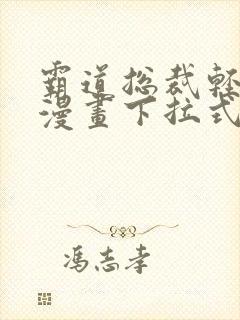 霸道总裁轻
漫画下拉式
冯志孝